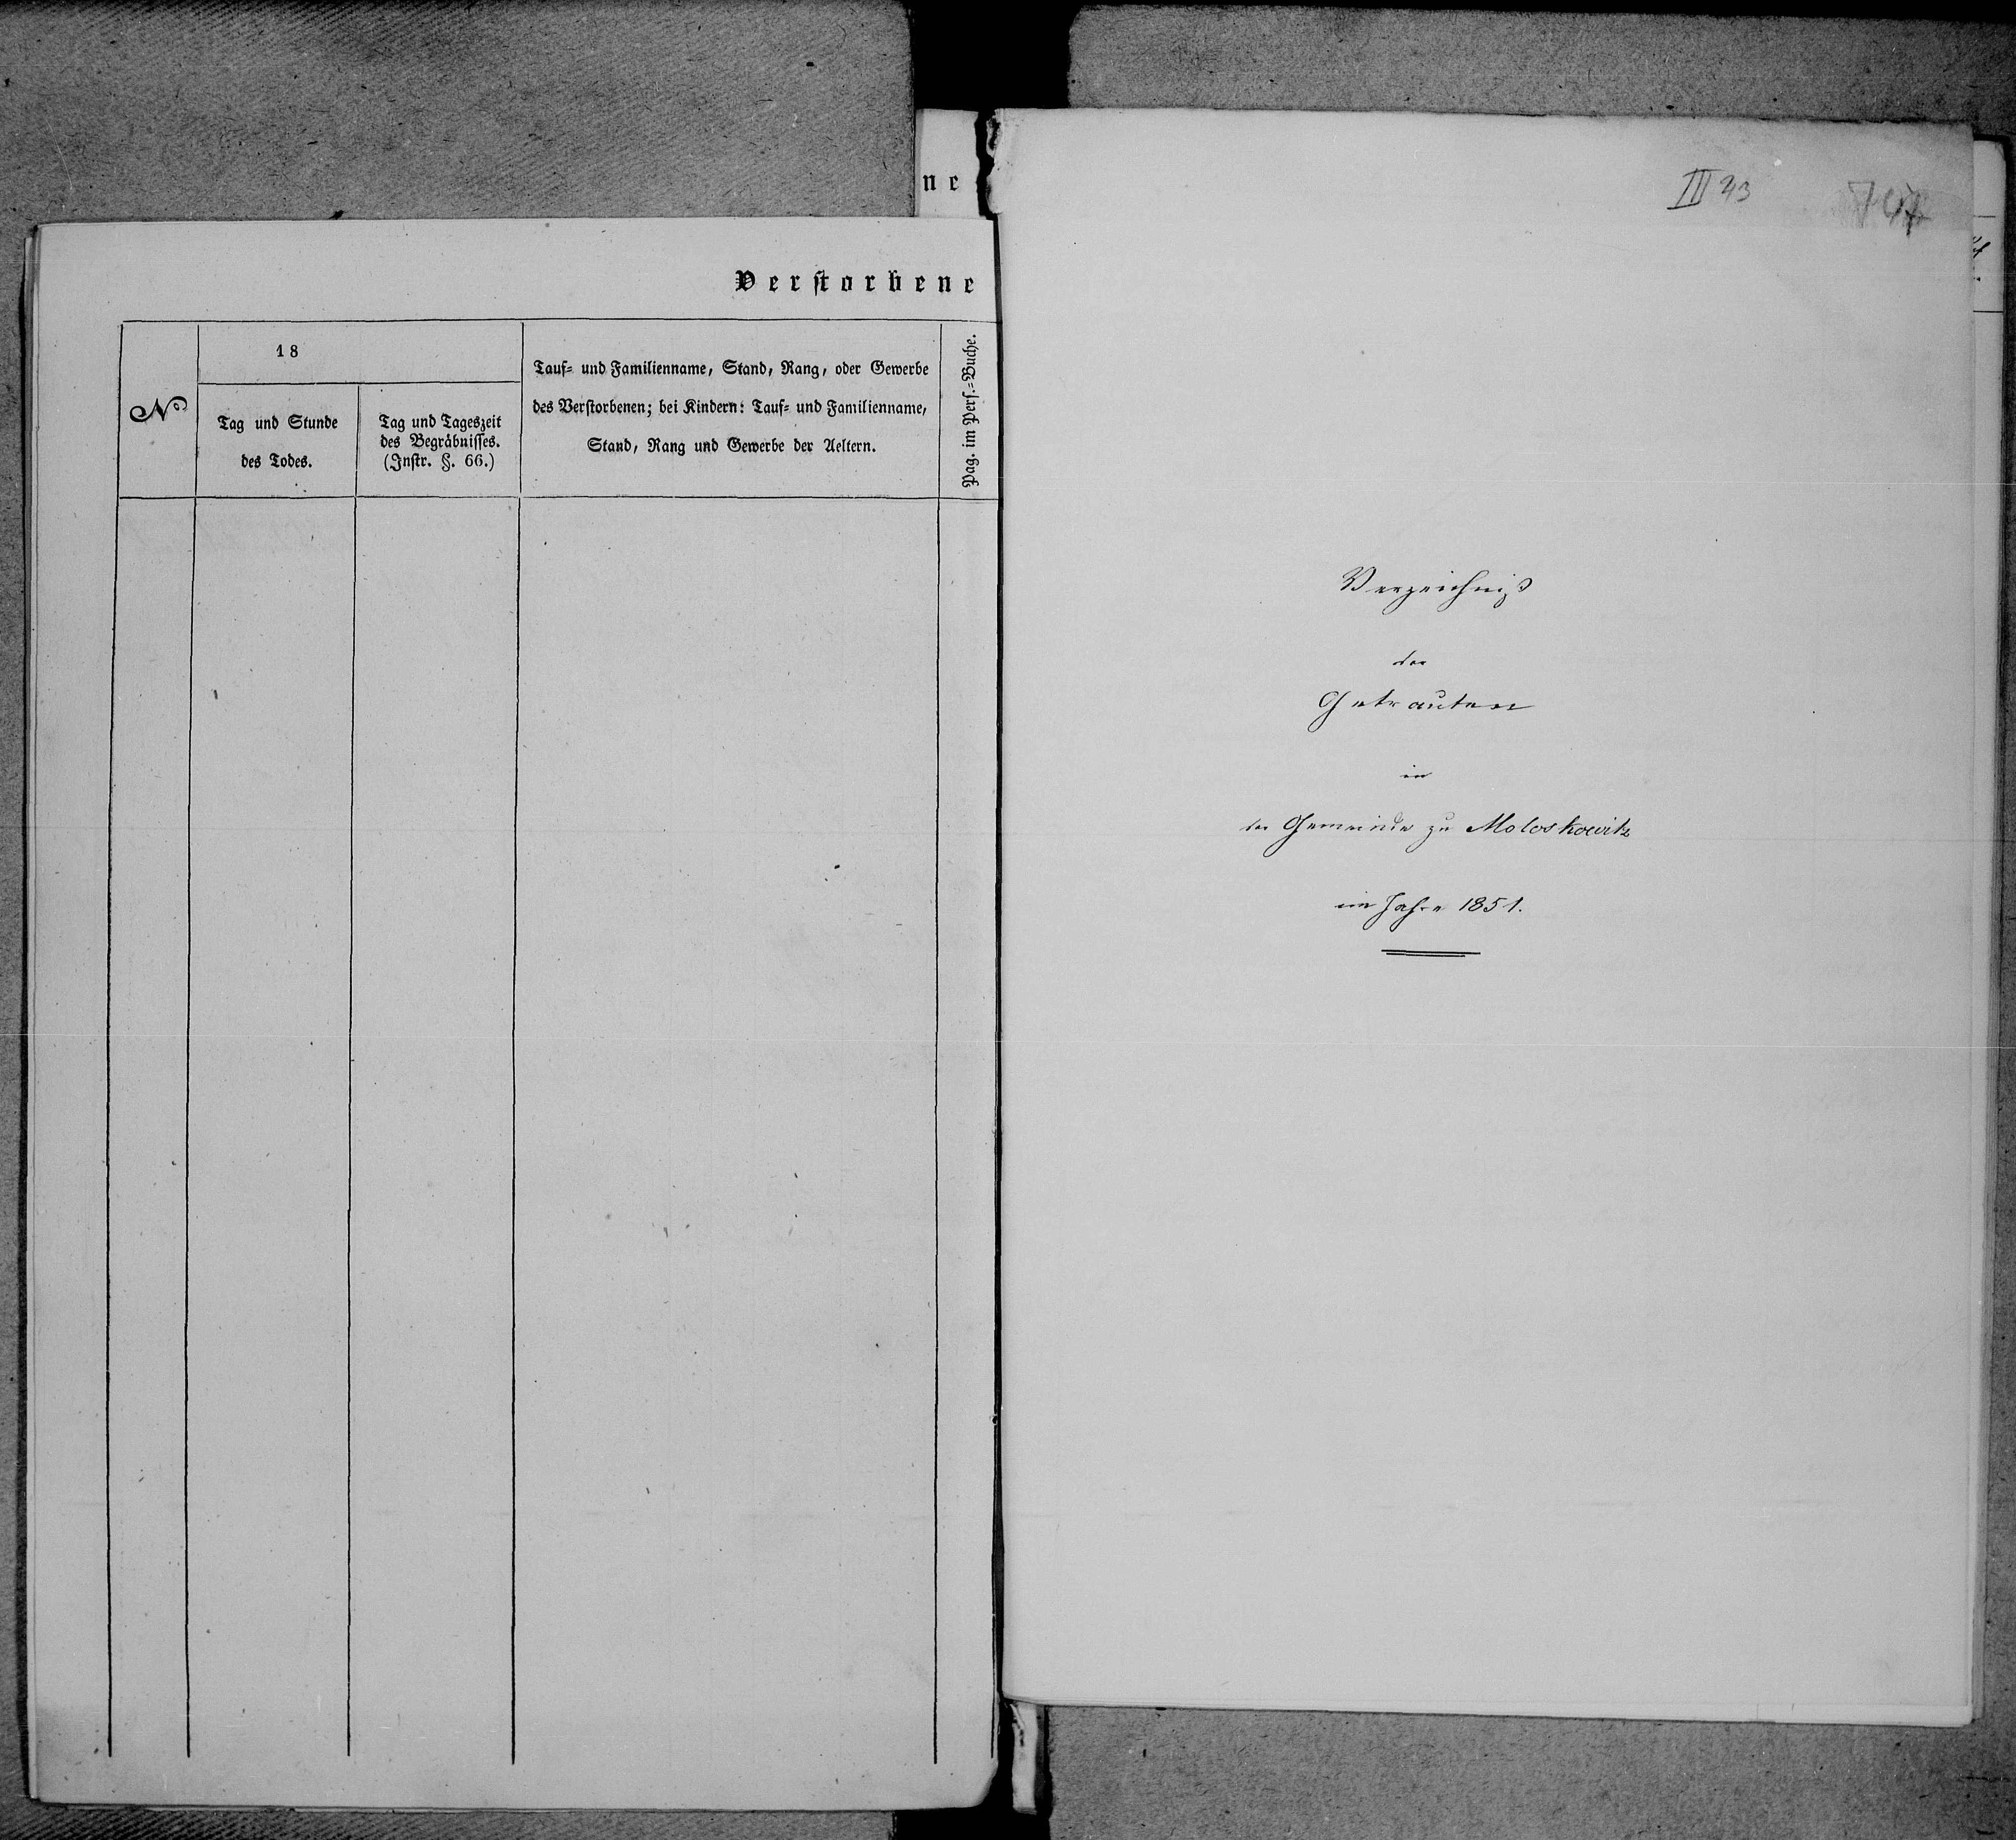 ne
Verstorbene
№
18
Tag und Stunde
des Todes.
Tag und Tageszeit
des Begräbnisses.
(Instr. §. 66.)
Tauf- und Familienname, Stand, Rang, oder Gewerbe
des Verstorbenen; bei Kindern: Tauf- und Familienname,
Stand, Rang und Gewerbe der Aeltern.
Pag. im Pers.-Buche.
III 23
Verzeichniß
der
Getrauten
in
der Gemeinde zu Moloskowitz
im Jahre 1851.